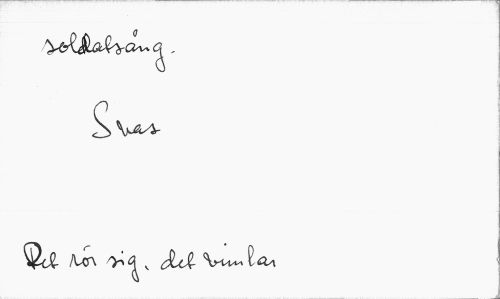 soldatsång.
Svas
Det rör sig, det vimlar